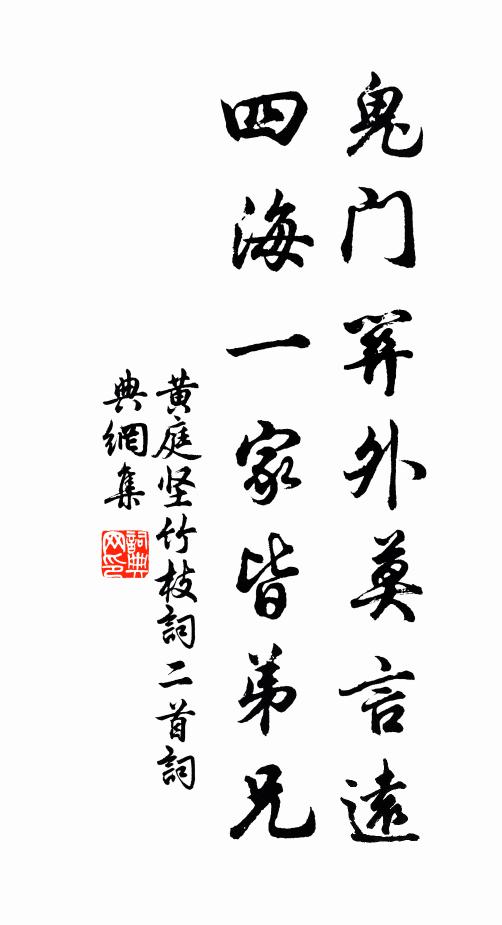 鬼门关外莫言遠
四海一家皆弟兄
黄庭坚竹枝詞二首詞
典網集
詞典
网印